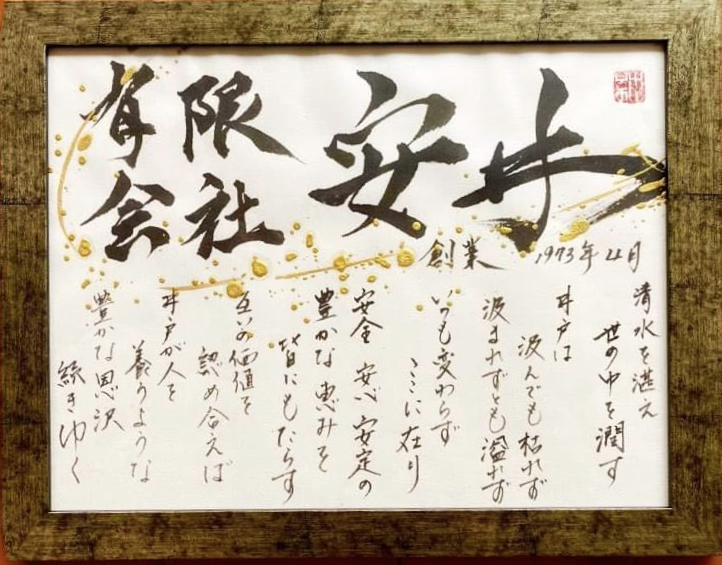 有限会社 安井
創業 1973年4月
清水を湛え
世の中を潤す
井戸は
汲んでも枯れず
汲まれずとも溢れず
いつも変わらず
ここに在り
安全 安心 安定の
豊かな恵みを
皆にもたらす
互いの価値を
認め合えば
井戸が人を
養うような
豊かな恩沢
続きゆく